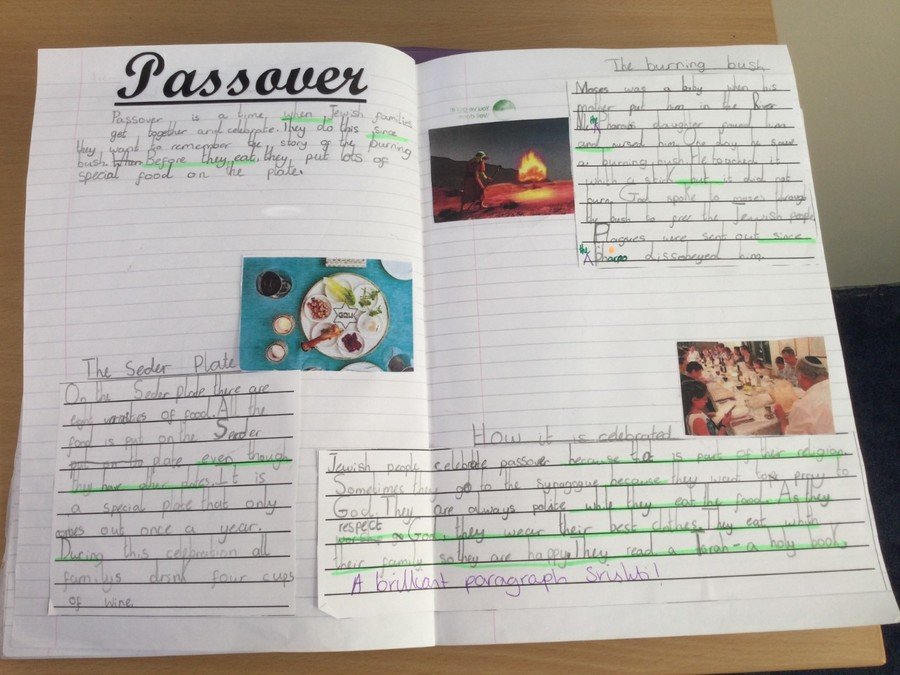 Passover
Passover is a time when Jewish families
get together and celebrate. They do this since
they want to remember the story of the burning
bush. When Before they eat, they put lots of
special food on the plate.
The Seder Plate
On the Seder Plate there are
eight varieties of food. All the
food is put on the Seeder
put on to plate even though
they have other plates. It is
a special plate that only
comes out once a year.
During this celebration all
familys drink four cups
of wine.
The burning bush
Moses was a baby when his
mother put him in the River
the
Pharos daughter found him
and nursed him. One day he
a burning bush. He it
which a stick but it did not
God spoke to moses through
the bush to free the Jewish people
Plagues were sent out since
the
pharoo dissobeyed him.
How it is celebrated
Jewish people celebrate passover because it is part of their religion.
Sometimes they go to the synagogue because they want to pray to
God. They are always polite while they eat the food. As they
respect
worship God, they wear their best clothes. They eat whith
their family so they are happy. They read a Torah - a holy book.
A brilliant paragraph Srishti!